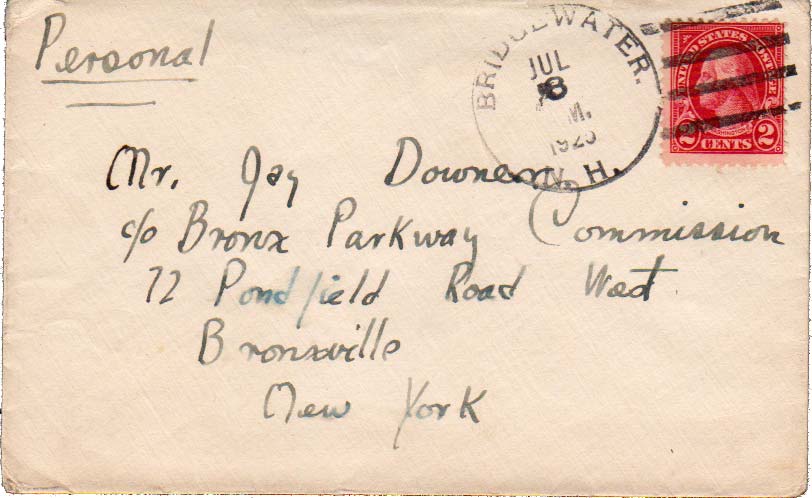 Personal
BRIDGEWATER.
JUL
8
M.
1925
N. H.
UNITED STATES POSTAGE
WASHINGTON
2 CENTS 2
Mr. Jay Downer
c/o Bronx Parkway Commission
72 Pondfield Road West
Bronxville
New York